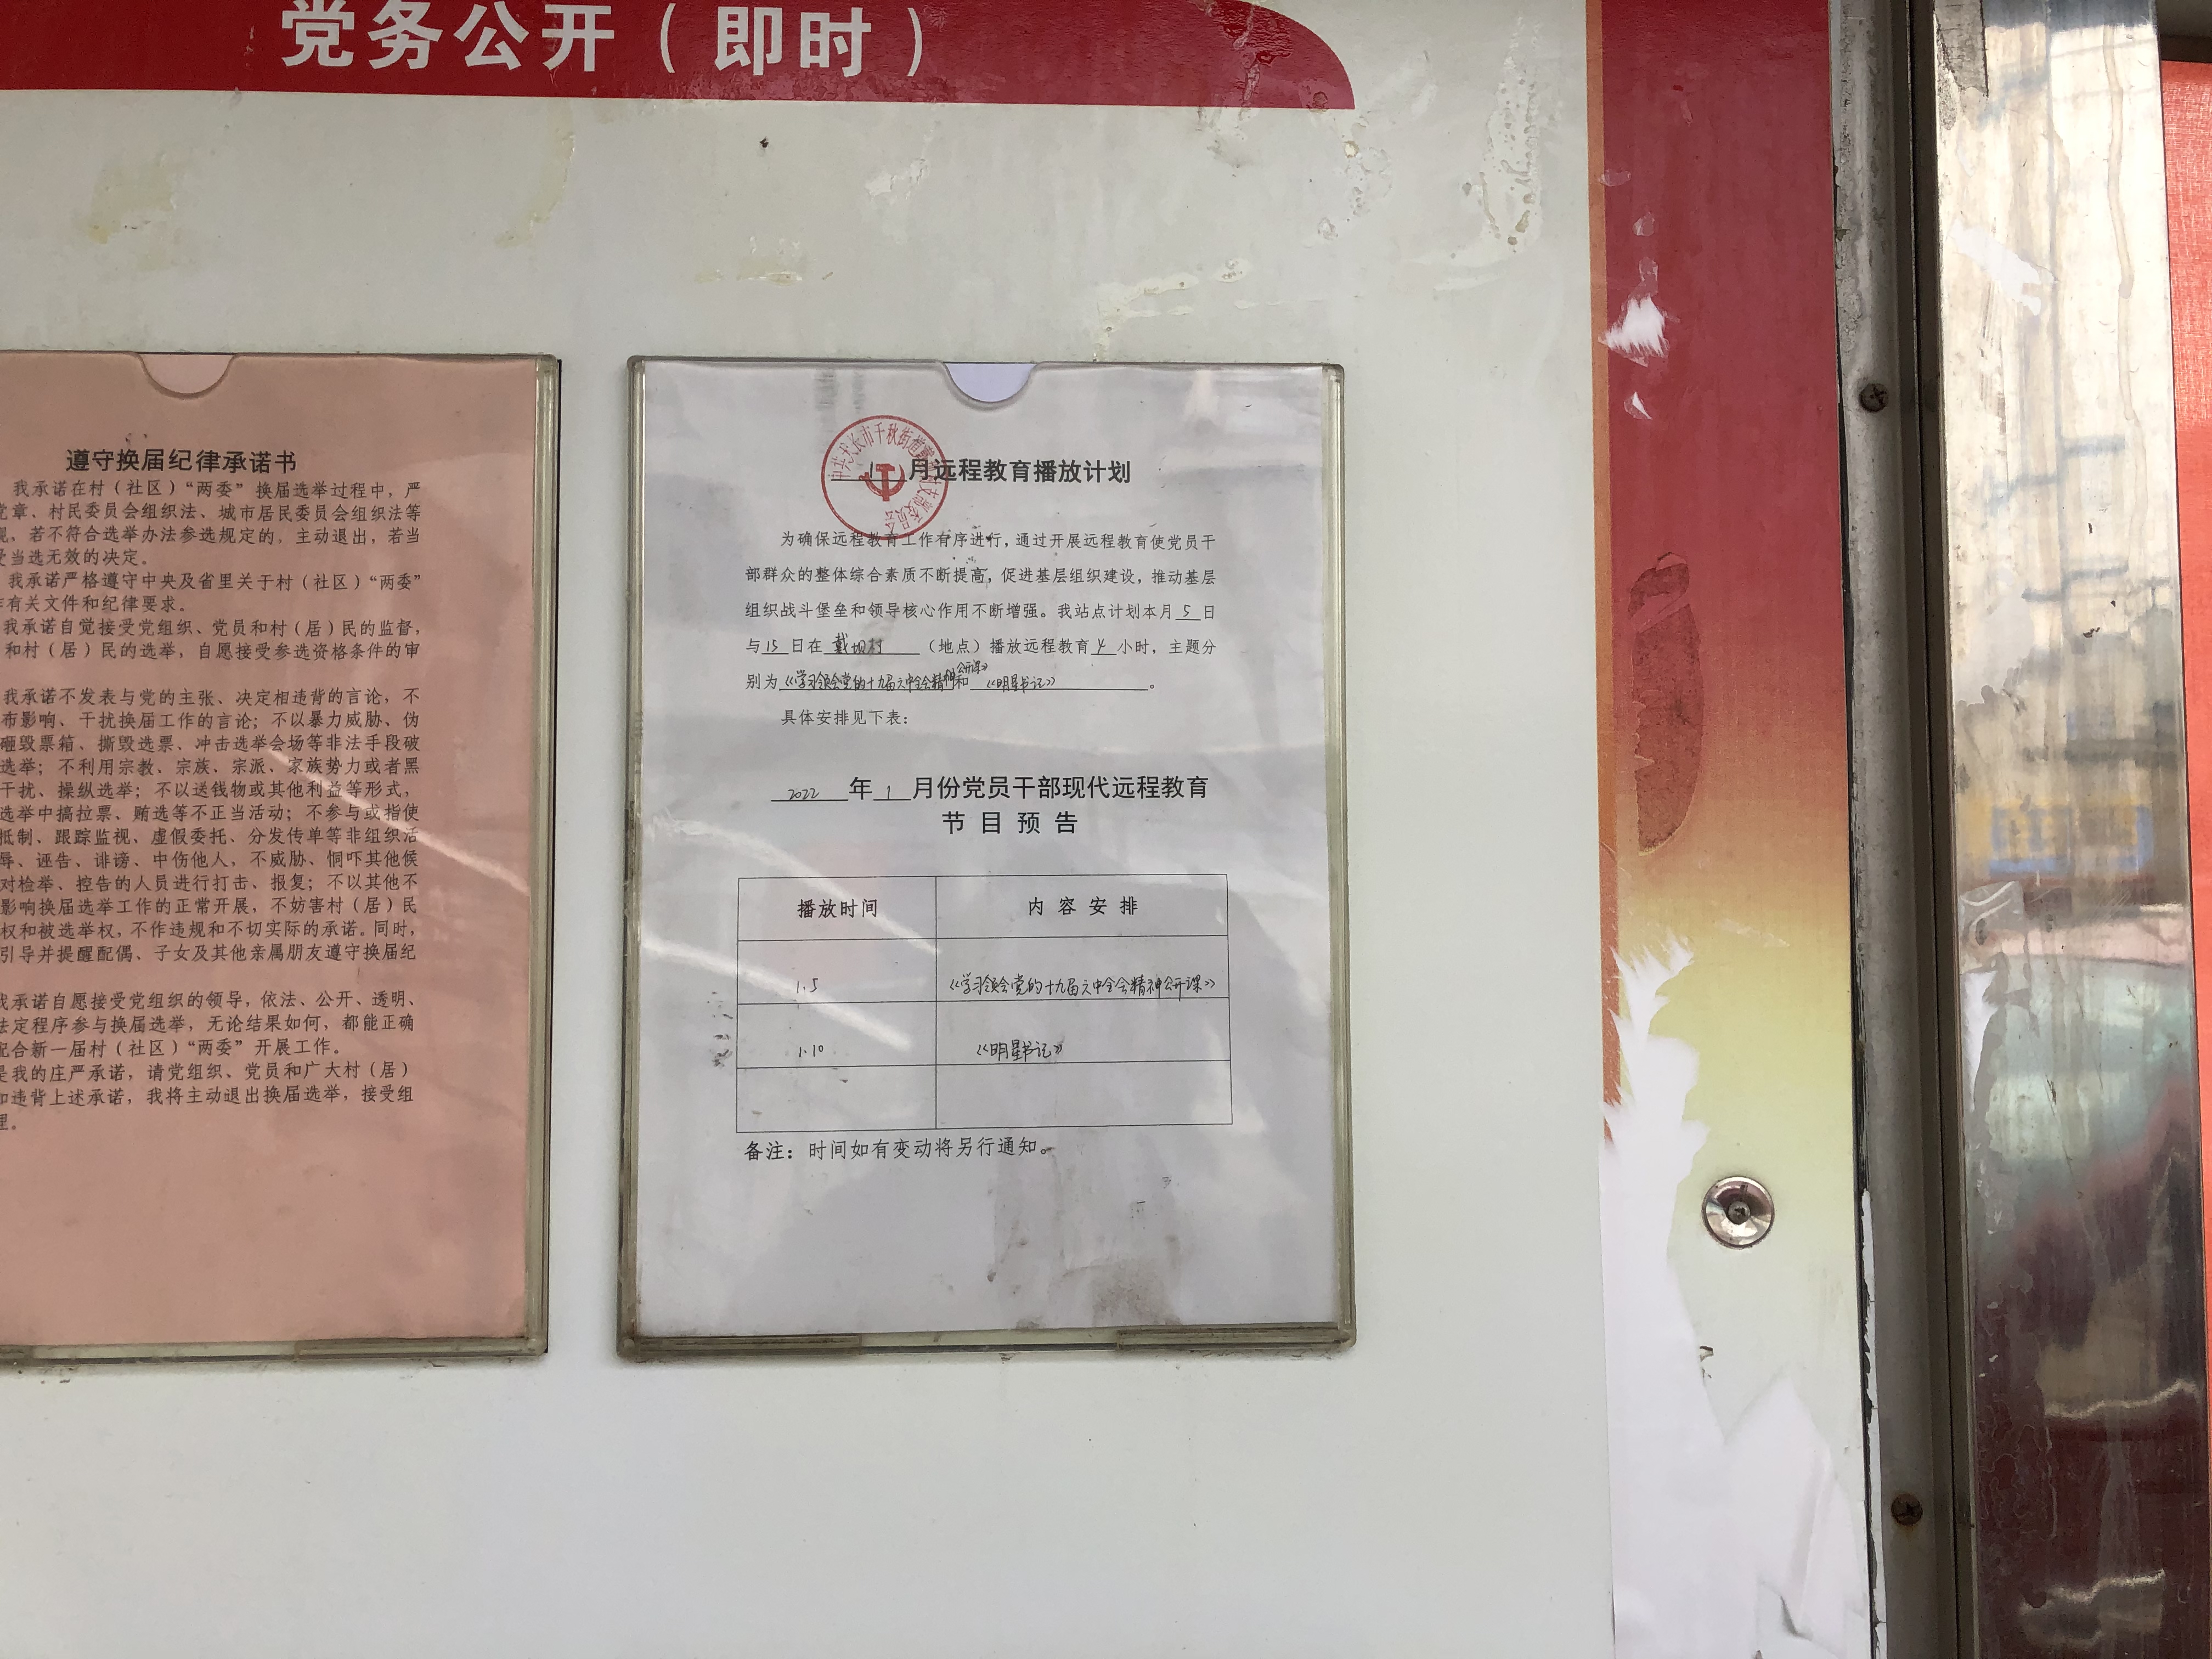 党务公开（即时）
遵守换届纪律承诺书
我承诺在村（社区）“两委”换届选举过程中，严
党章、村民委员会组织法、城市居民委员会组织法等
规，若不符合选举办法参选规定的，主动退出，若当
受当选无效的决定。
我承诺严格遵守中央及省里关于村（社区）“两委”
作有关文件和纪律要求。
我承诺自觉接受党组织、党员和村（居）民的监督，
和村（居）民的选举，自愿接受参选资格条件的审
我承诺不发表与党的主张、决定相违背的言论，不
布影响、干扰换届工作的言论；不以暴力威胁、伪
砸毁票箱、撕毁选票、冲击选举会场等非法手段破
选举；不利用宗教、宗族、宗派、家族势力或者黑
干扰、操纵选举；不以送钱物或其他利益等形式，
选举中搞拉票、贿选等不正当活动；不参与或指使
抵制、跟踪监视、虚假委托、分发传单等非组织活
辱、诬告、诽谤、中伤他人，不威胁、恫吓其他候
对检举、控告的人员进行打击、报复；不以其他不
影响换届选举工作的正常开展，不妨害村（居）民
权和被选举权，不作违规和不切实际的承诺。同时，
引导并提醒配偶、子女及其他亲属朋友遵守换届纪
我承诺自愿接受党组织的领导，依法、公开、透明、
法定程序参与换届选举，无论结果如何，都能正确
配合新一届村（社区）“两委”开展工作。
是我的庄严承诺，请党组织、党员和广大村（居）
如违背上述承诺，我将主动退出换届选举，接受组
理。
中共天长市千秋街道戴坝村支部委员会
1 月远程教育播放计划
为确保远程教育工作有序进行，通过开展远程教育使党员干
部群众的整体综合素质不断提高，促进基层组织建设，推动基层
组织战斗堡垒和领导核心作用不断增强。我站点计划本月 5 日
与 15 日在 戴坝村 （地点）播放远程教育 4 小时，主题分
别为《学习领会党的十九届六中全会精神公开课》和《明星书记》。
具体安排见下表：
2022 年 1 月份党员干部现代远程教育
节目预告
播放时间 内容安排
1.5 《学习领会党的十九届六中全会精神公开课》
1.10 《明星书记》
备注：时间如有变动将另行通知。